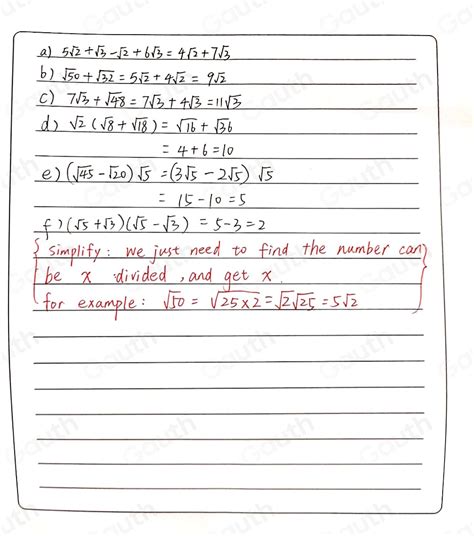 a) 5√2 + √3 - √2 + 6√3 = 4√2 + 7√3
b) √50 + √32 = 5√2 + 4√2 = 9√2
c) 7√3 + √48 = 7√3 + 4√3 = 11√3
d) √2 (√8 + √18) = √16 + √36
= 4 + 6 = 10
e) (√45 - √20) √5 = (3√5 - 2√5) √5
= 15 - 10 = 5
f) (√5 + √3)(√5 - √3) = 5 - 3 = 2
simplify: we just need to find the number can
be x divided, and get x.
for example: √50 = √25×2 = √2√25 = 5√2